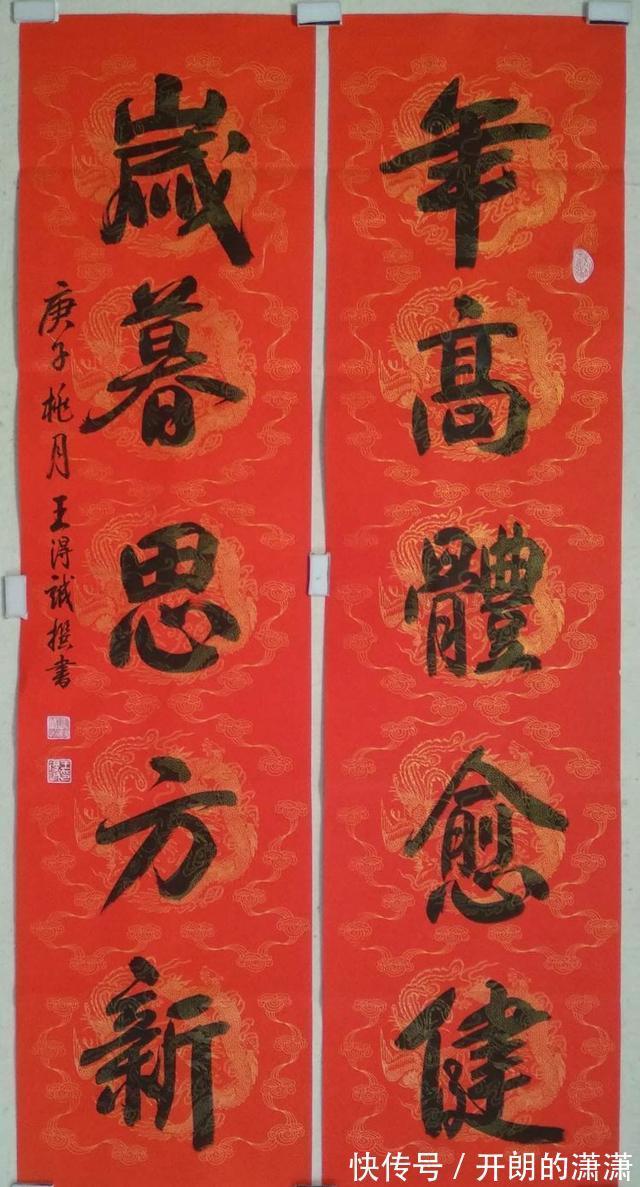 年高體愈健
歲暮思方新
庚子桃月王得誠撰書
快传号/开朗的潇潇